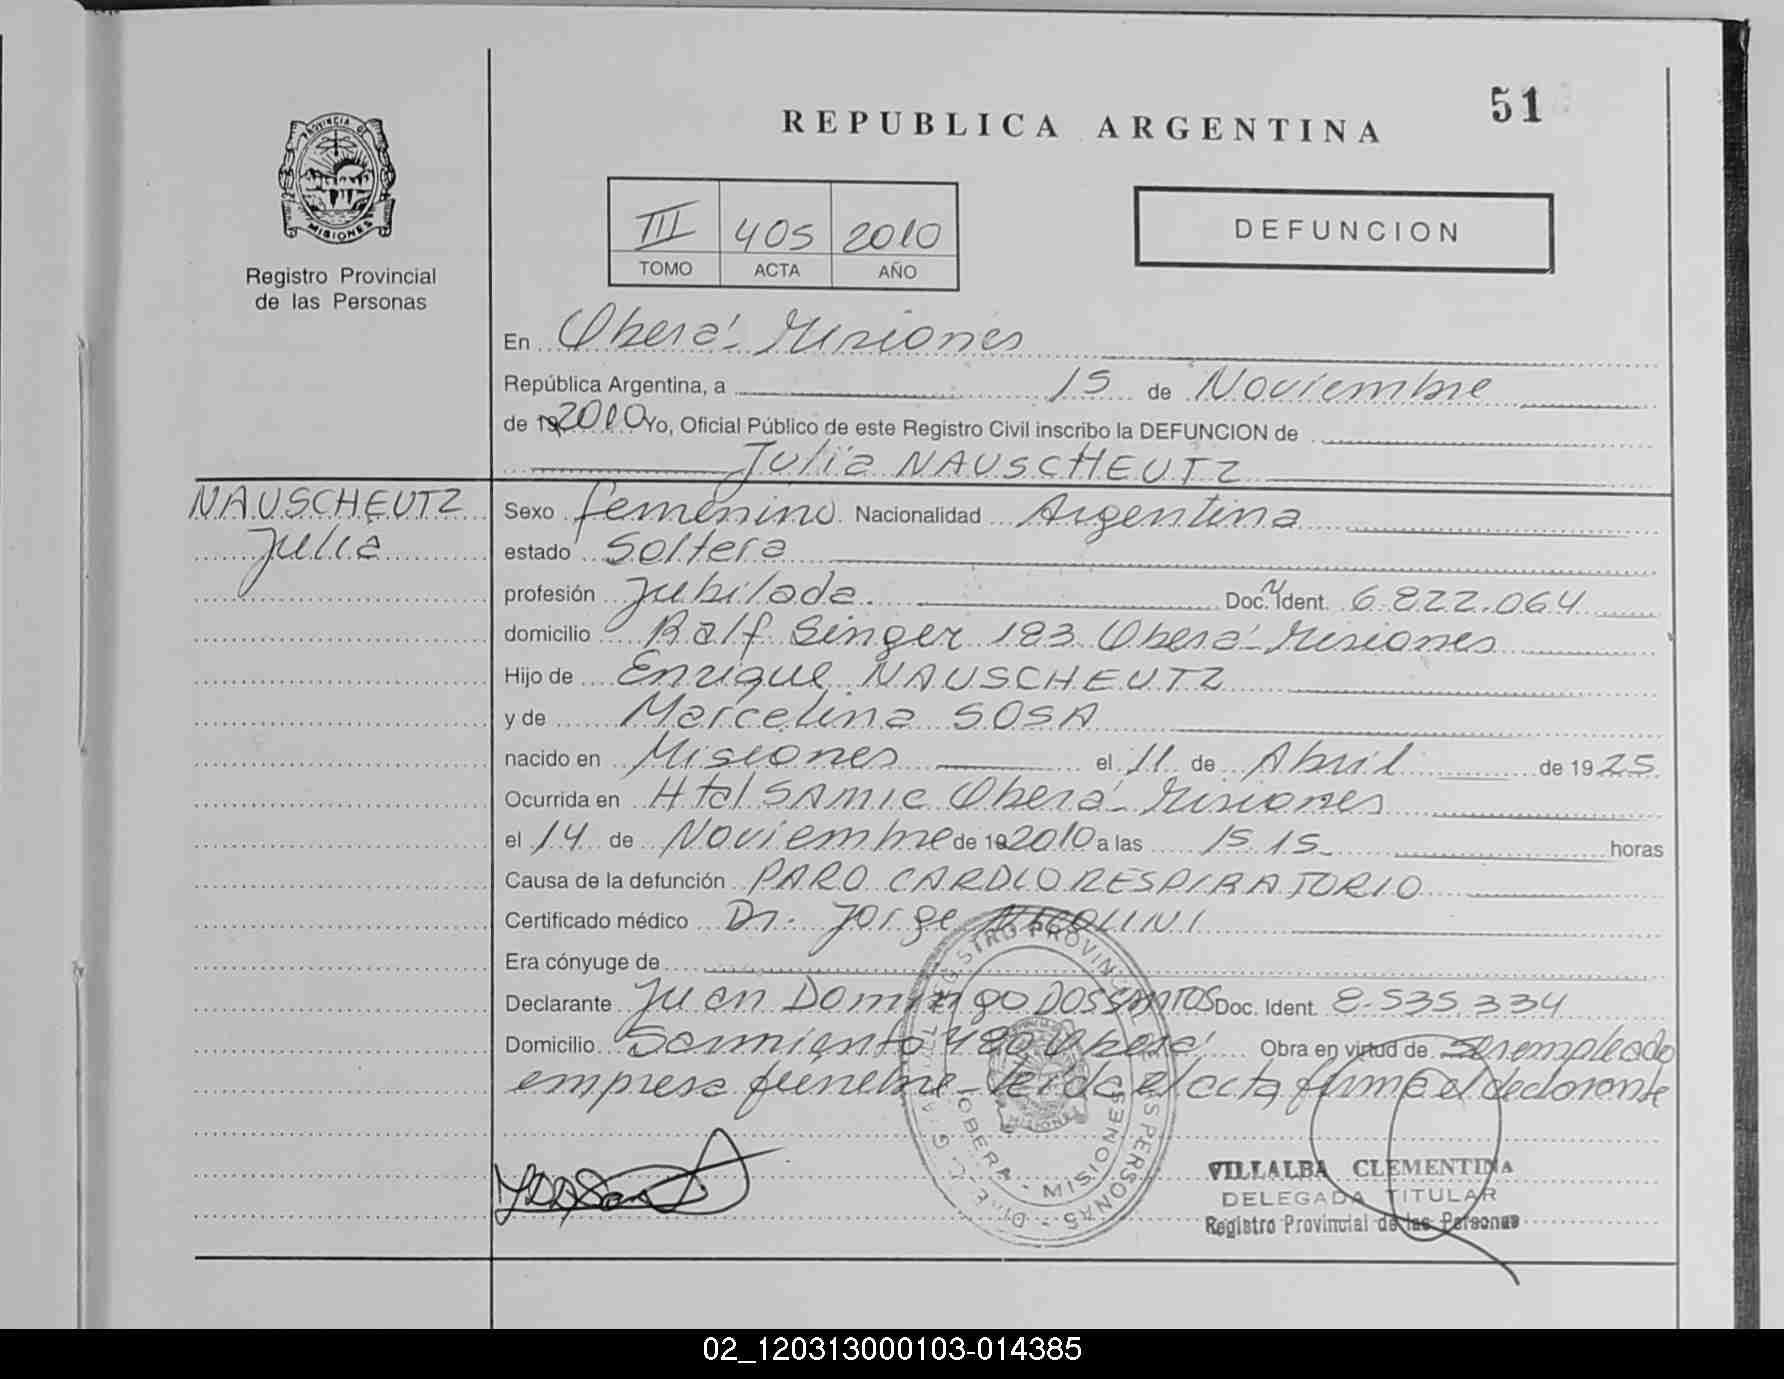 51
REPUBLICA ARGENTINA
PROVINCIA DE
MISIONES
Registro Provincial
de las Personas
III 405 2010
TOMO ACTA AÑO
DEFUNCION
En Oberá - Misiones
República Argentina, a 15 de Noviembre
de 19 2010 Yo, Oficial Público de este Registro Civil inscribo la DEFUNCION de
Julia NAUSCHEUTZ
NAUSCHEUTZ
Julia
Sexo femenino Nacionalidad Argentina
estado Soltera
profesión Jubilada. Doc. Ident. 6.822.064
domicilio Ralf Singer 183 Oberá - Misiones
Hijo de Enrique NAUSCHEUTZ
y de Marcelina SOSA
nacido en Misiones el 11 de Abril de 1925
Ocurrida en Htal SAMIC Oberá - Misiones
el 14 de Noviembre de 19 2010 a las 15.15 horas
Causa de la defunción PARO CARDIORESPIRATORIO
Certificado médico Dr. Jorge NICOLINI
Era cónyuge de
Declarante Juan Domingo DOSSANTOS Doc. Ident. 8.535.334
Domicilio Sarmiento 480 Oberá Obra en virtud de ser empleado
empresa funebre - leida el acta firma el declarante
REGISTRO PROVINCIAL DE LAS PERSONAS
OBERA - MISIONES
VILLALBA CLEMENTINA
DELEGADA TITULAR
Registro Provincial de las Personas
02_120313000103-014385